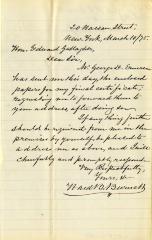 20 Nassau Street,
New York, March 10/75.
Hon. Edward Gallagher,
Dear Sir,
Mr. George D.
has sent me this day the enclosed
papers for my final certificate,
requesting me to forward them to
your address after doing so.
If anything further
should be required from me in the
premises by yourself, be pleased to
address me as above, and I will
cheerfully and promptly respond.
Very Respectfully,
Yours, &c
Ward B. Burnett